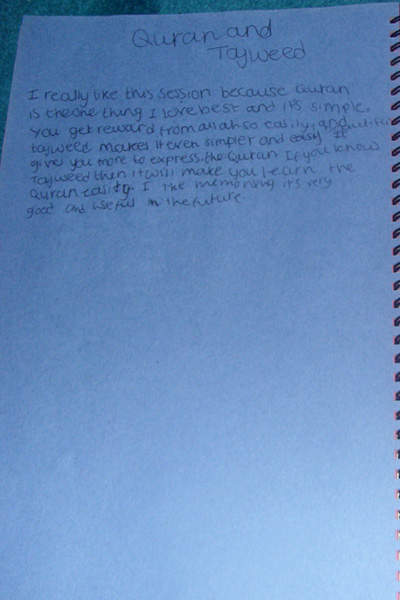 Quran and
Tajweed
I really like this session because Quran
is the one thing I love best and it's simple.
You get reward from allah so easily, and
tajweed makes it even simpler and easy It
gives you more to express the Quran If you know
Tajweed then it will make you learn the
Quran easily. I like memorising it's very
good and useful in the future.